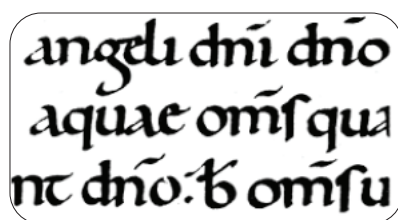 angeli dn̄i dn̄o
aquae om̄ſ qua
nt dn̄o: b̄ om̄ſ u